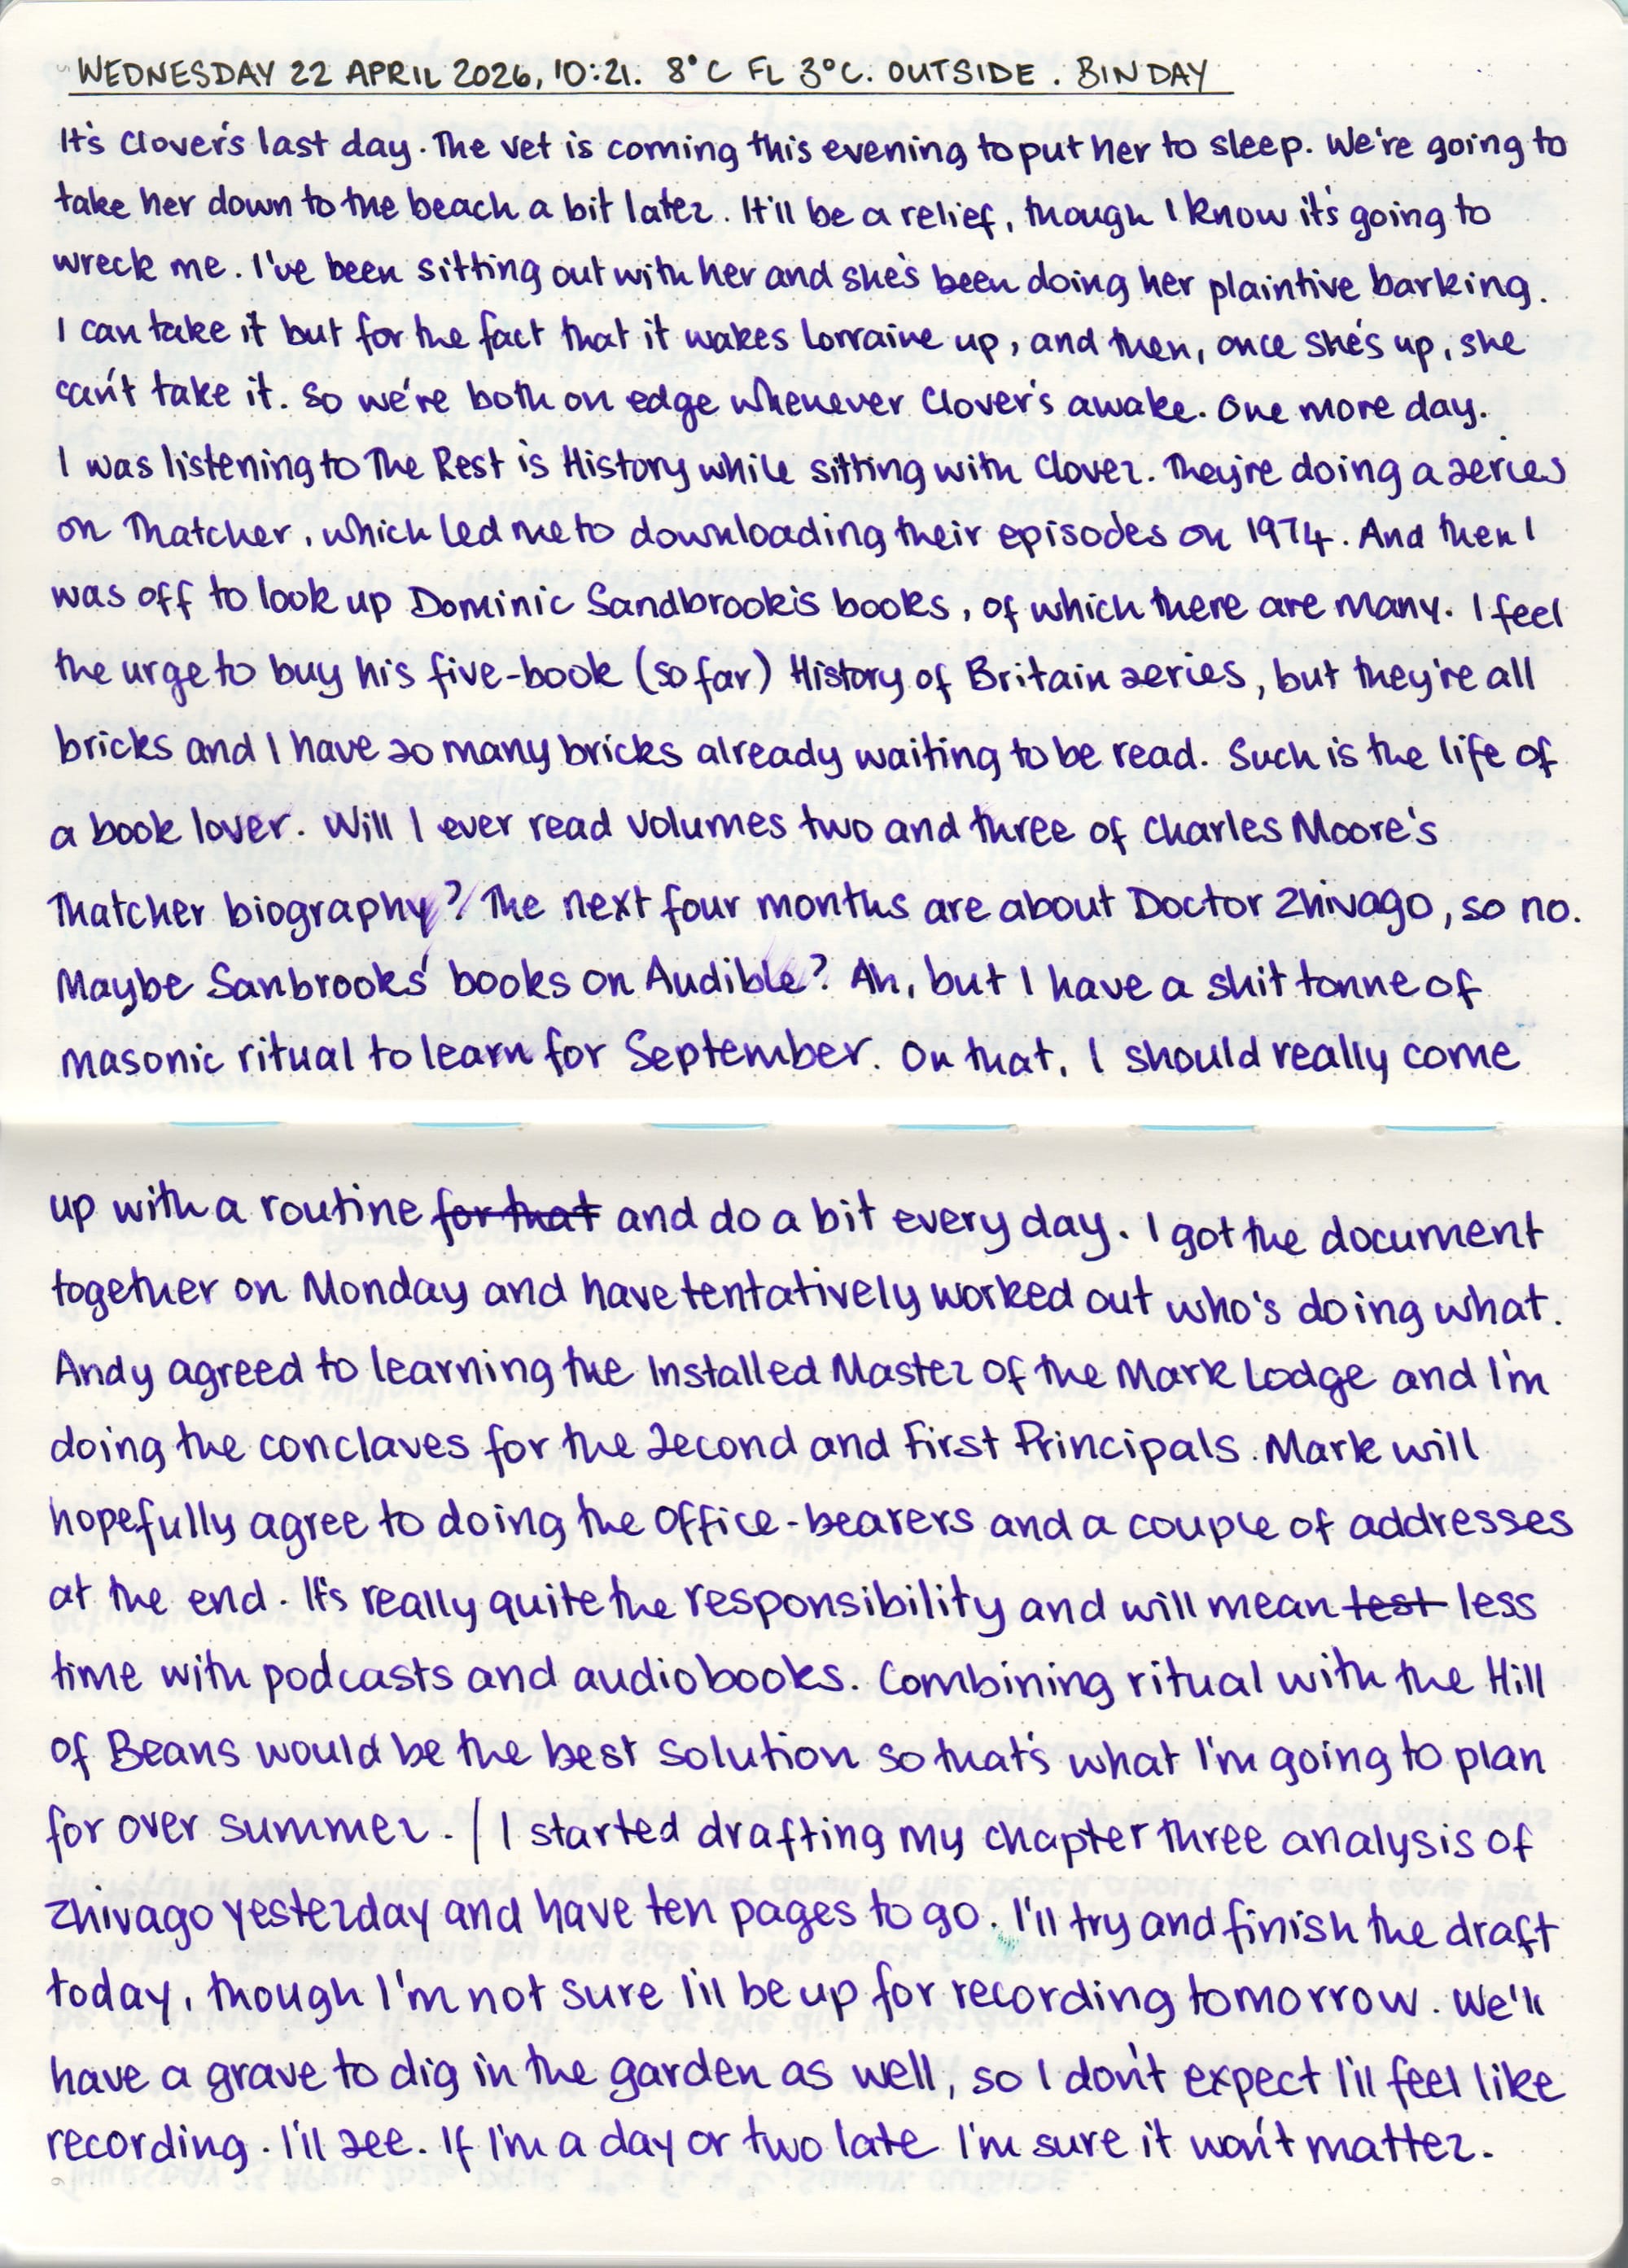 WEDNESDAY 22 APRIL 2026, 10:21. 8°C FL 3°C. OUTSIDE. BIN DAY
It's Clover's last day. The vet is coming this evening to put her to sleep. We're going to
take her down to the beach a bit later. It'll be a relief, though I know it's going to
wreck me. I've been sitting out with her and she's been doing her plaintive barking.
I can take it but for the fact that it wakes Lorraine up, and then, once she's up, she
can't take it. So we're both on edge whenever Clover's awake. One more day.
I was listening to The Rest is History while sitting with Clover. They're doing a series
on Thatcher, which led me to downloading their episodes on 1974. And then I
was off to look up Dominic Sandbrook's books, of which there are many. I feel
the urge to buy his five-book (so far) History of Britain series, but they're all
bricks and I have so many bricks already waiting to be read. Such is the life of
a book lover. Will I ever read volumes two and three of Charles Moore's
Thatcher biography? The next four months are about Doctor Zhivago, so no.
Maybe Sanbrooks' books on Audible? Ah, but I have a shit tonne of
masonic ritual to learn for September. On that, I should really come
up with a routine for that and do a bit every day. I got the document
together on Monday and have tentatively worked out who's doing what.
Andy agreed to learning the Installed Master of the Mark Lodge and I'm
doing the conclaves for the Second and First Principals. Mark will
hopefully agree to doing the office-bearers and a couple of addresses
at the end. It's really quite the responsibility and will mean test less
time with podcasts and audiobooks. Combining ritual with the Hill
of Beans would be the best solution so that's what I'm going to plan
for over summer. / I started drafting my chapter three analysis of
Zhivago yesterday and have ten pages to go. I'll try and finish the draft
today, though I'm not sure I'll be up for recording tomorrow. We'll
have a grave to dig in the garden as well, so I don't expect I'll feel like
recording. I'll see. If I'm a day or two late I'm sure it won't matter.